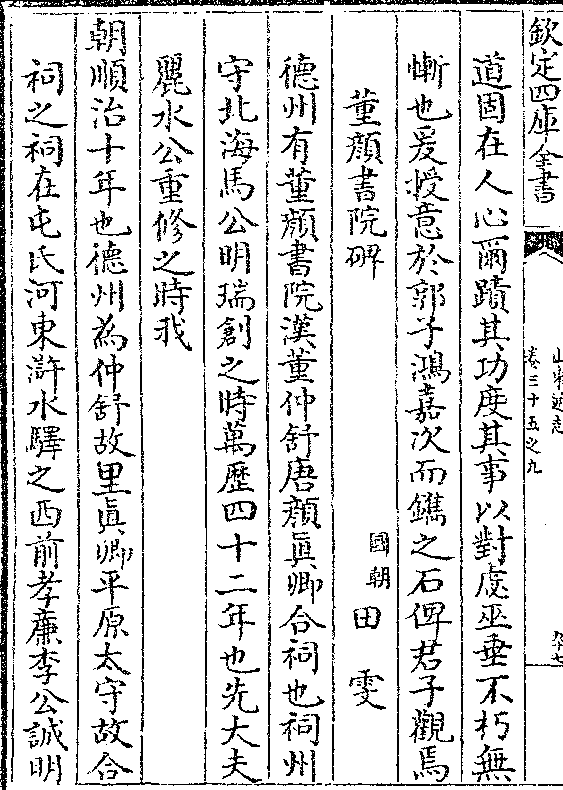 欽定四庫全書
山東通志
卷三十五之九
道固在人心爾蹟其功度其事以對處巫垂不朽無
慚也爰授意於郭子鴻嘉次而鐫之石俾君子觀焉
董顔書院碑
國朝田雯
德州有董顔書院漢董仲舒唐顔眞卿合祠也祠州
守北海馬公明瑞創之時萬歷四十二年也先大夫
麗水公重修之時我
朝順治十年也德州為仲舒故里眞卿平原太守故合
祠之祠在屯氏河東滸水驛之西前孝亷李公誠明